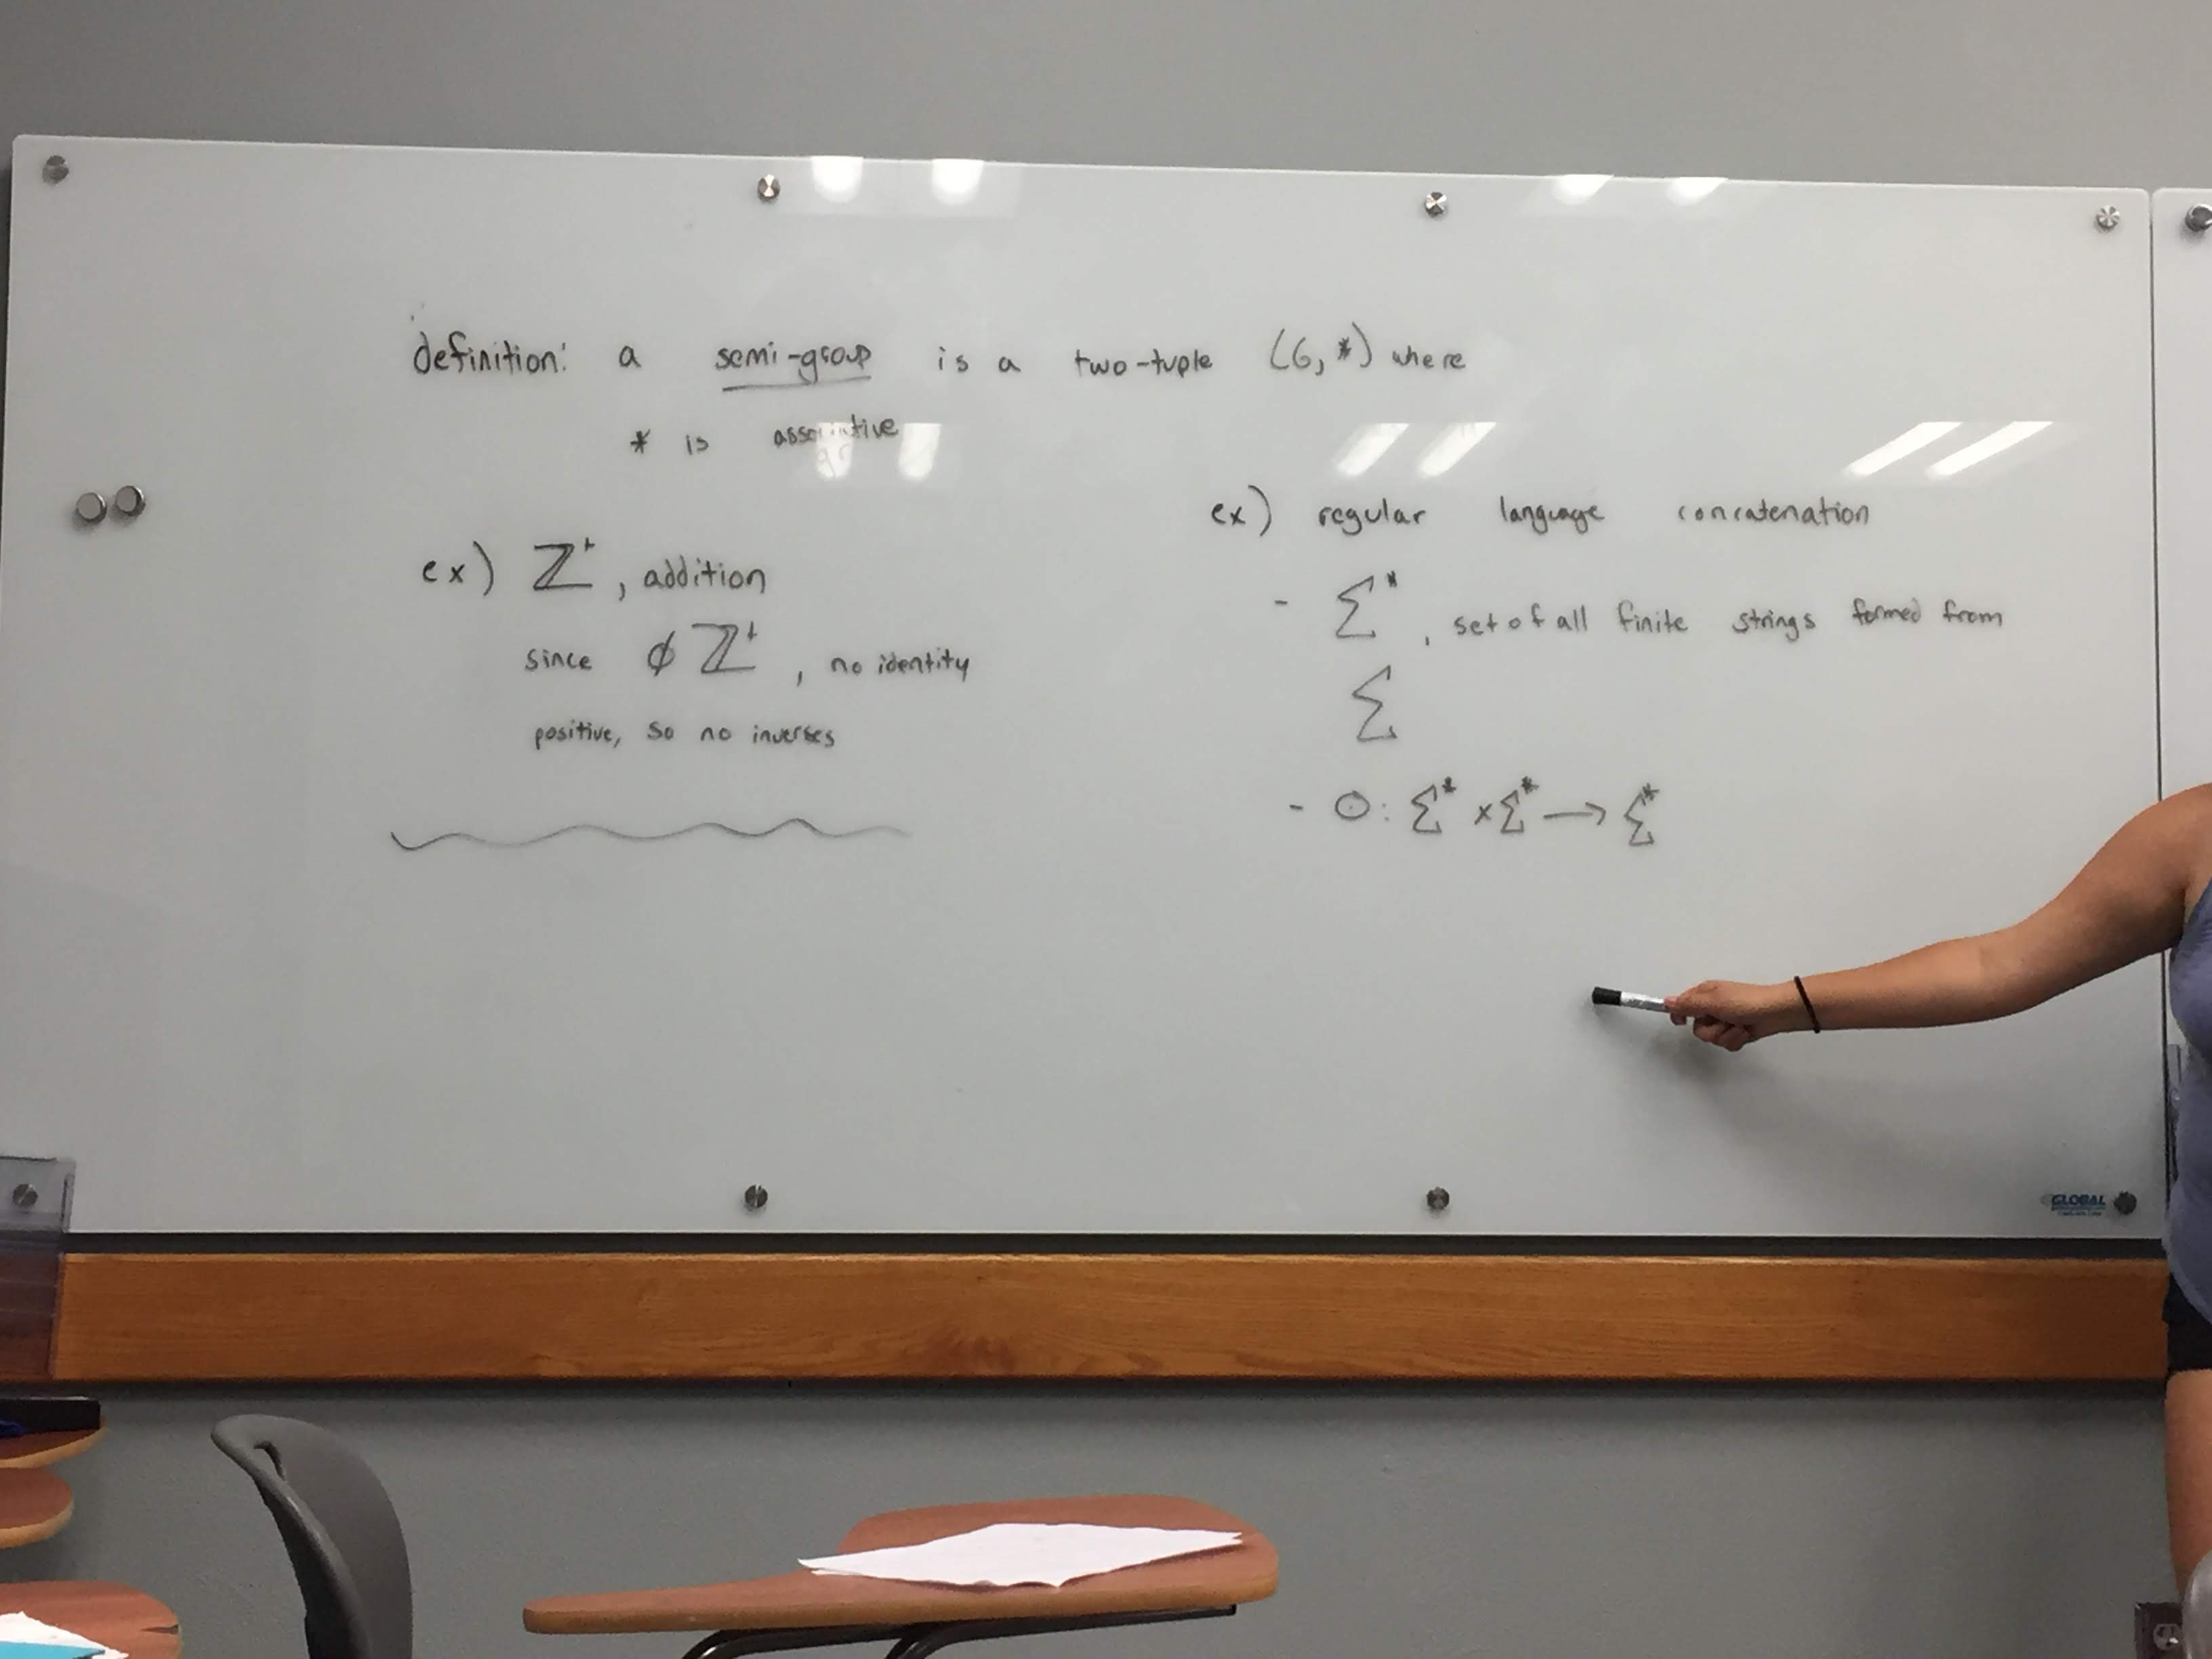 definition: a semi-group is a two-tuple (G, *) where
* is associative
ex) ℤ⁺, addition
since ∅ ℤ⁺, no identity
positive, so no inverses
ex) regular language concatenation
- Σ*, set of all finite strings formed from
Σ
- ⊙: Σ* × Σ* → Σ*
GLOBAL